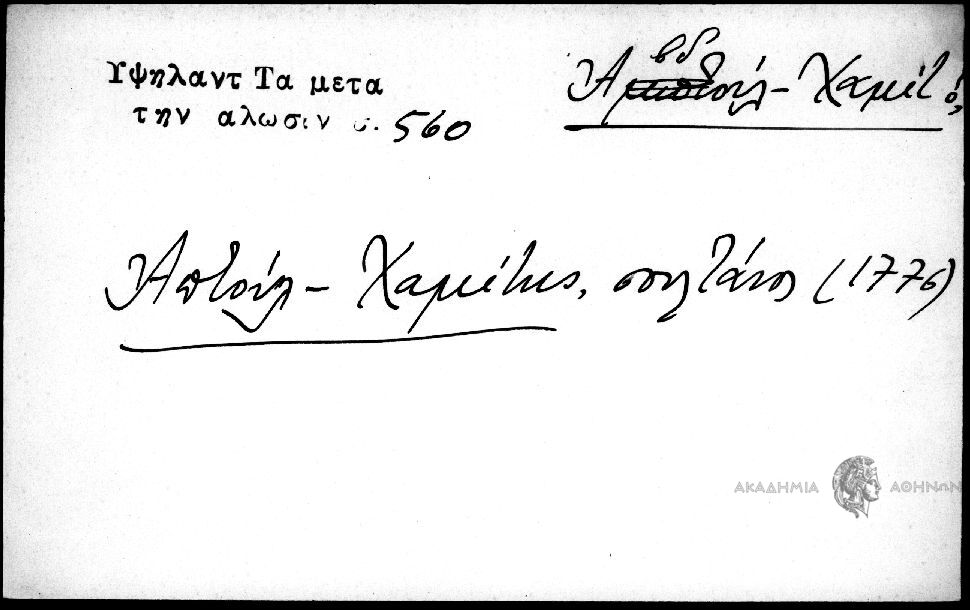 Υψηλαντ Τα μετα
την αλωσιν σ. 560
Αβδούλ - Χαμίτ ὁ,
Απτούλ - Χαμίτης, σουλτάνος (1776)
ΑΚΑΔΗΜΙΑ ΑΘΗΝΩΝ